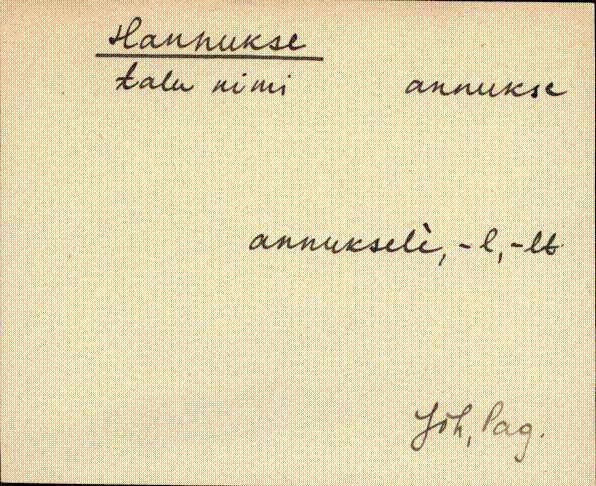 Hannukse
talu nimi annukse
annukselè, -l, -lt
Jõh, Pag.